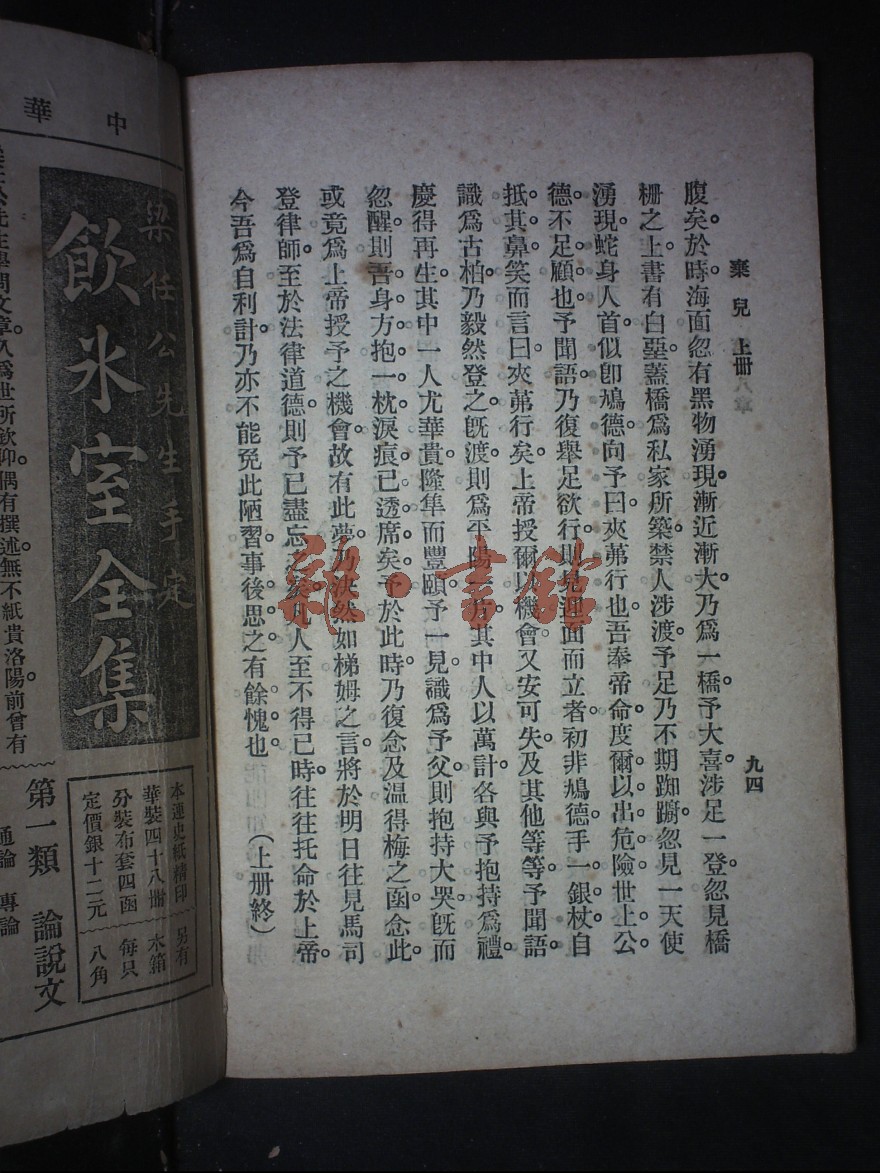 棄兒 上冊 八章
九四
腹矣。於時海面忽有黑物湧現。漸近漸大。乃爲一橋。予大喜。涉足一登。忽見橋
柵之上。書有白堊。蓋橋爲私家所築。禁人涉渡。予足乃不期踟蹰。忽見一天使
湧現。蛇身人首。似卽鳩德。向予曰。夾苐行也。吾奉帝命。度爾以出危險。世上公
德。不足顧也。予聞語。乃復舉足欲行。則見迎面而立者。初非鳩德。手一銀杖。自
抵其鼻。笑而言曰。夾苐行矣。上帝授爾以機會。又安可失。及其他等等。予聞語。
識爲古柏。乃毅然登之。旣渡。則爲平陽一片。其中人以萬計。各與予抱持爲禮。
慶得再生。其中一人尤華貴。隆準而豐頤。予一見識爲予父。則抱持大哭。旣而
忽醒。則吾身方抱一枕。淚痕已透席矣。予於此時。乃復念及溫得梅之函。念此
或竟爲上帝授予之機會。故有此夢。乃決然如梯姆之言。將於明日往見馬司
登律師。至於法律道德。則予已盡忘之矣。凡人至不得已時。往往托命於上帝。
今吾爲自利計。乃亦不能免此陋習。事後思之。有餘愧也。 （上册終）
中華
梁任公先生手定
飲氷室全集
先生學問文章。久爲世所欽仰。偶有撰述。無不紙貴洛陽。前曾有
本連史紙精印
華裝四十八冊
分裝布套四函
定價銀十二元
另有
木箱
每只
八角
第一類 論說文
通論 專論